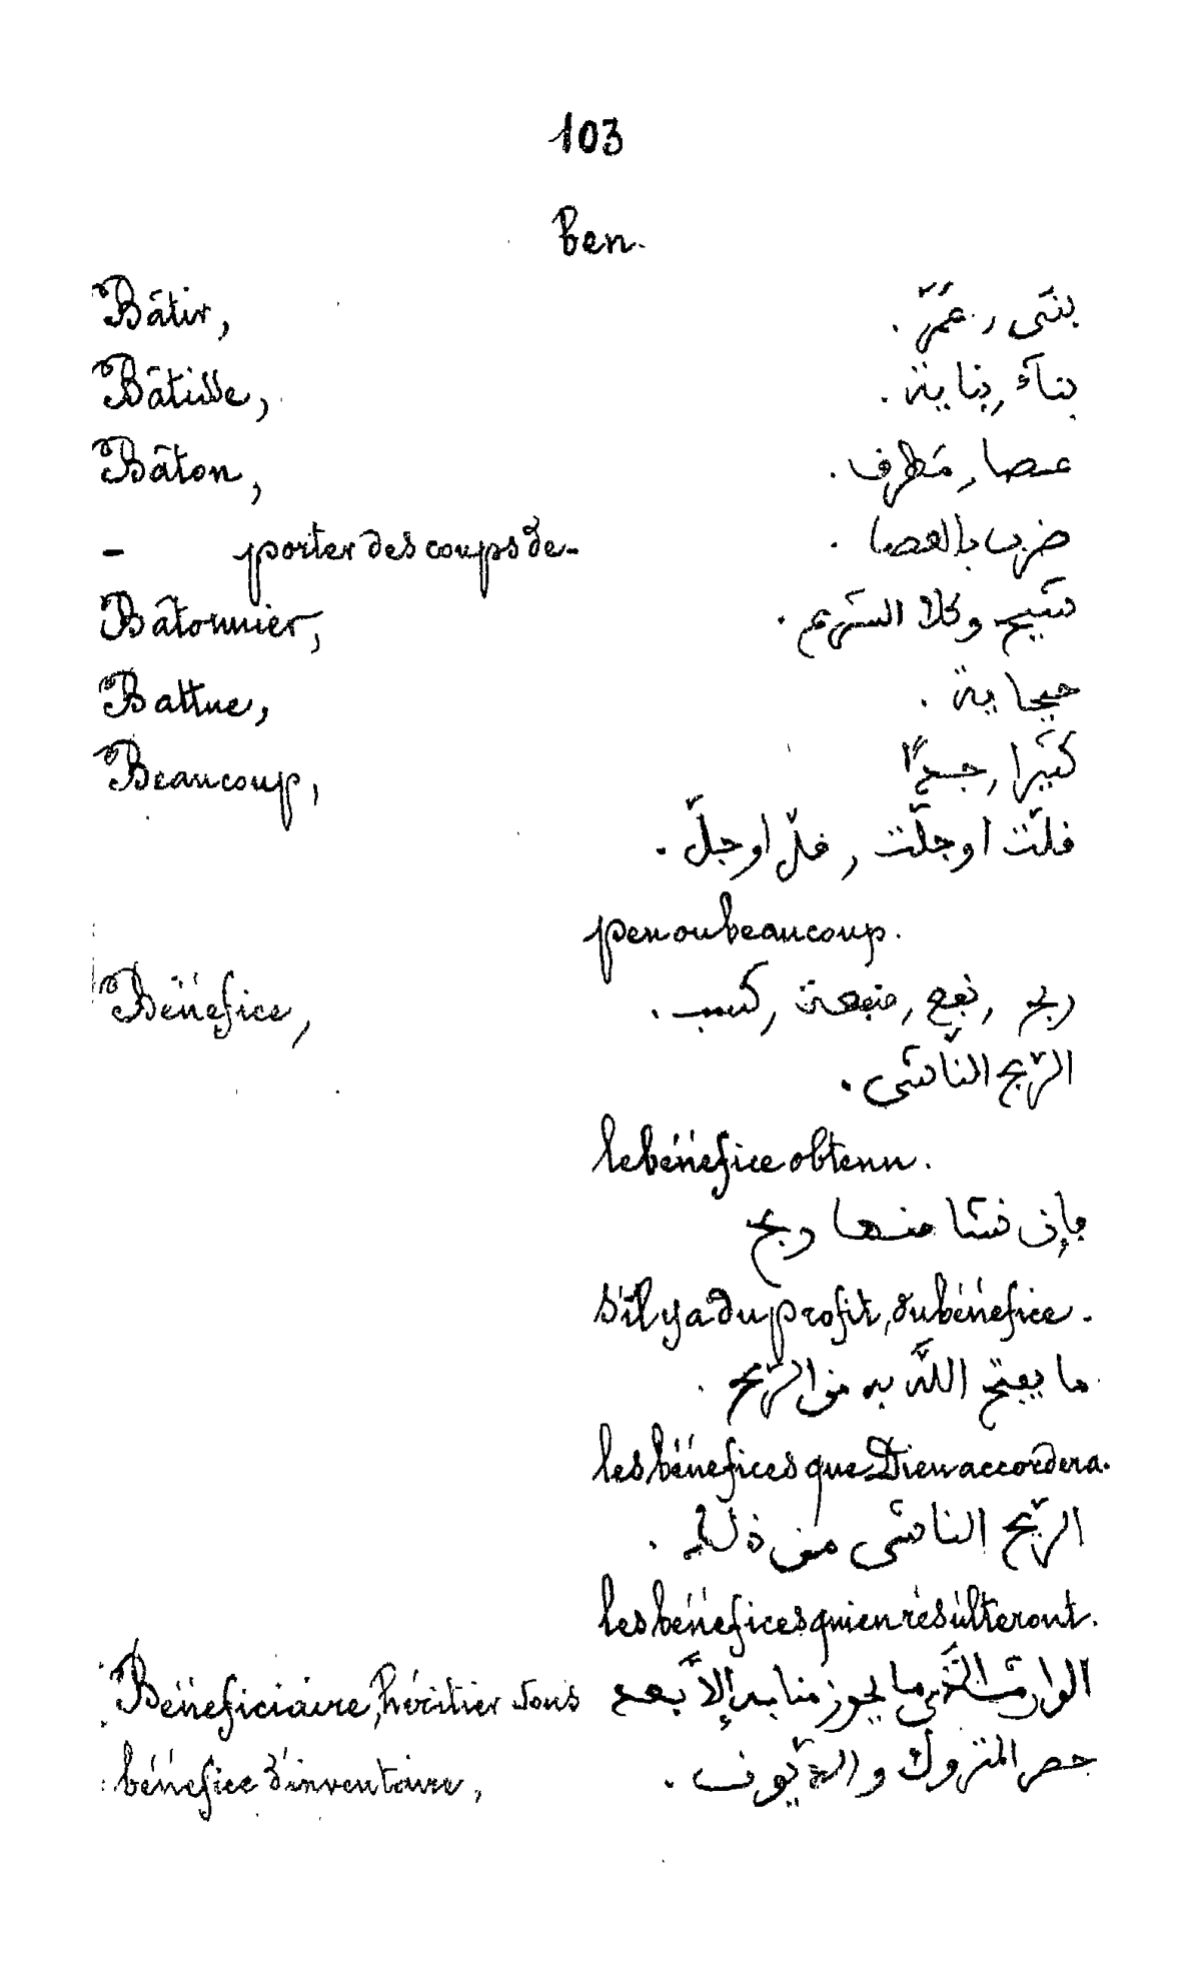 103
Ben.
Bâtir, بنى, عمّر.
Bâtisse, بناء, بناية.
Bâton, عصا, مطرف.
- porter des coups de - ضرب بالعصا.
Bâtonnier, شيخ وكلا الشرع.
Battue, حيحاية.
Beaucoup, كثيرا, جدًّا
قلّت او جلّت, قلّ او جلّ.
peu ou beaucoup.
Bénéfice, ربح, نفع, منفعة, كسب.
الرّبح النّاشى.
le bénéfice obtenu.
فإن نشا منها ربح
s'il y a du profit, du bénéfice.
ما يفتح اللّه به من الرّبح.
les bénéfices que Dieu accordera.
الرّبح الناشى من ذلك.
les bénéfices qui en résulteront.
Bénéficiaire, héritier sous الوارث الّذى ما يحوز منابه إلاّ بعد
bénéfice d'inventaire, حصر المتروك والدّيون.